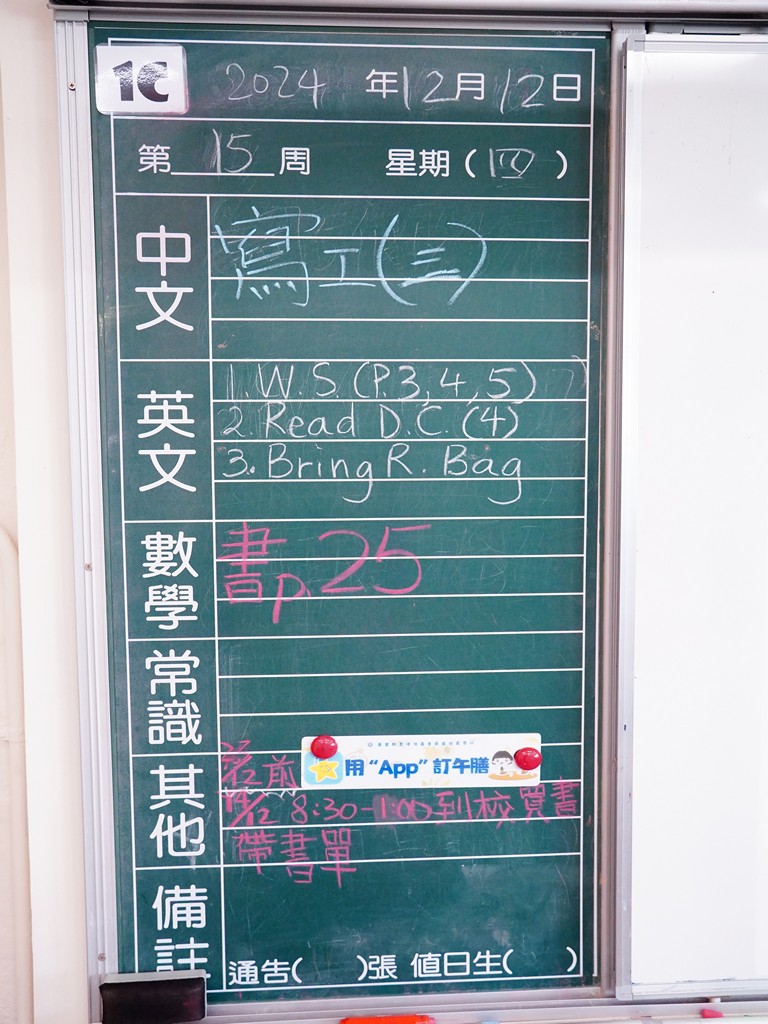 1C
2024 年12月12日
第 15 周 星期(四)
中文
寫工(三)
英文
1. W.S. (P.3, 4, 5)
2. Read D.C. (4)
3. Bring R. Bag
數學
書p.25
常識
其他
前
用“App”訂午膳
14/12 8:30-1:00到校買書
帶書單
備註
通告( )張 值日生( )